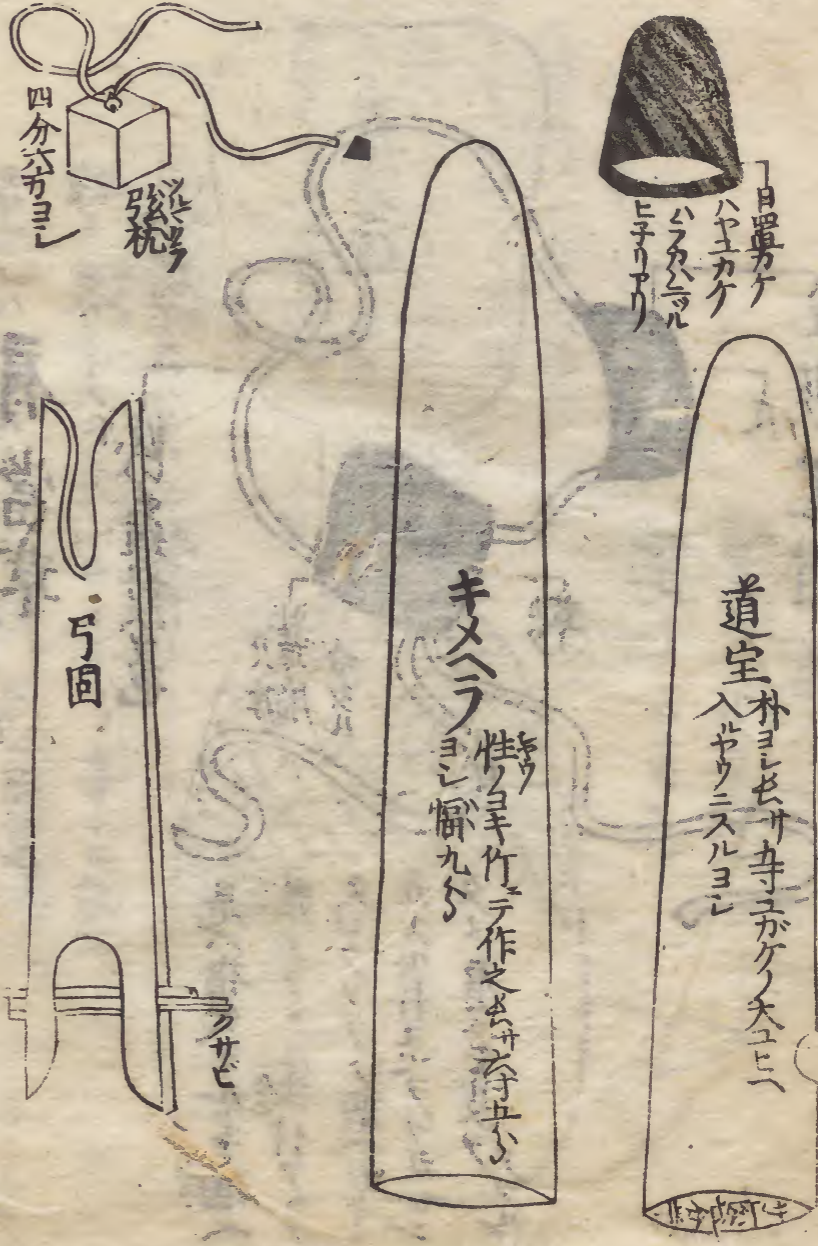 日置カケ
ハヤユカケ
ヒチリアリ
道宝
朴ヨシ長サ五寸ユガケノ大ユビヘ
入ルヤウニスルヨシ
キメヘラ
性ノヨキ竹ニテ作之長サ六寸五分
ヨシ幅九分
弦枕
四分六方ヨシ
弓固
クサビ